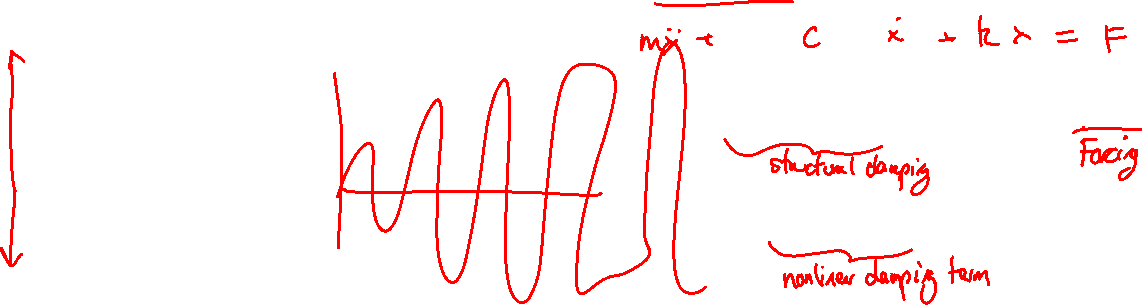 mẍ + c ẋ + k x = F
structural damping
Forcing
nonlinear damping term